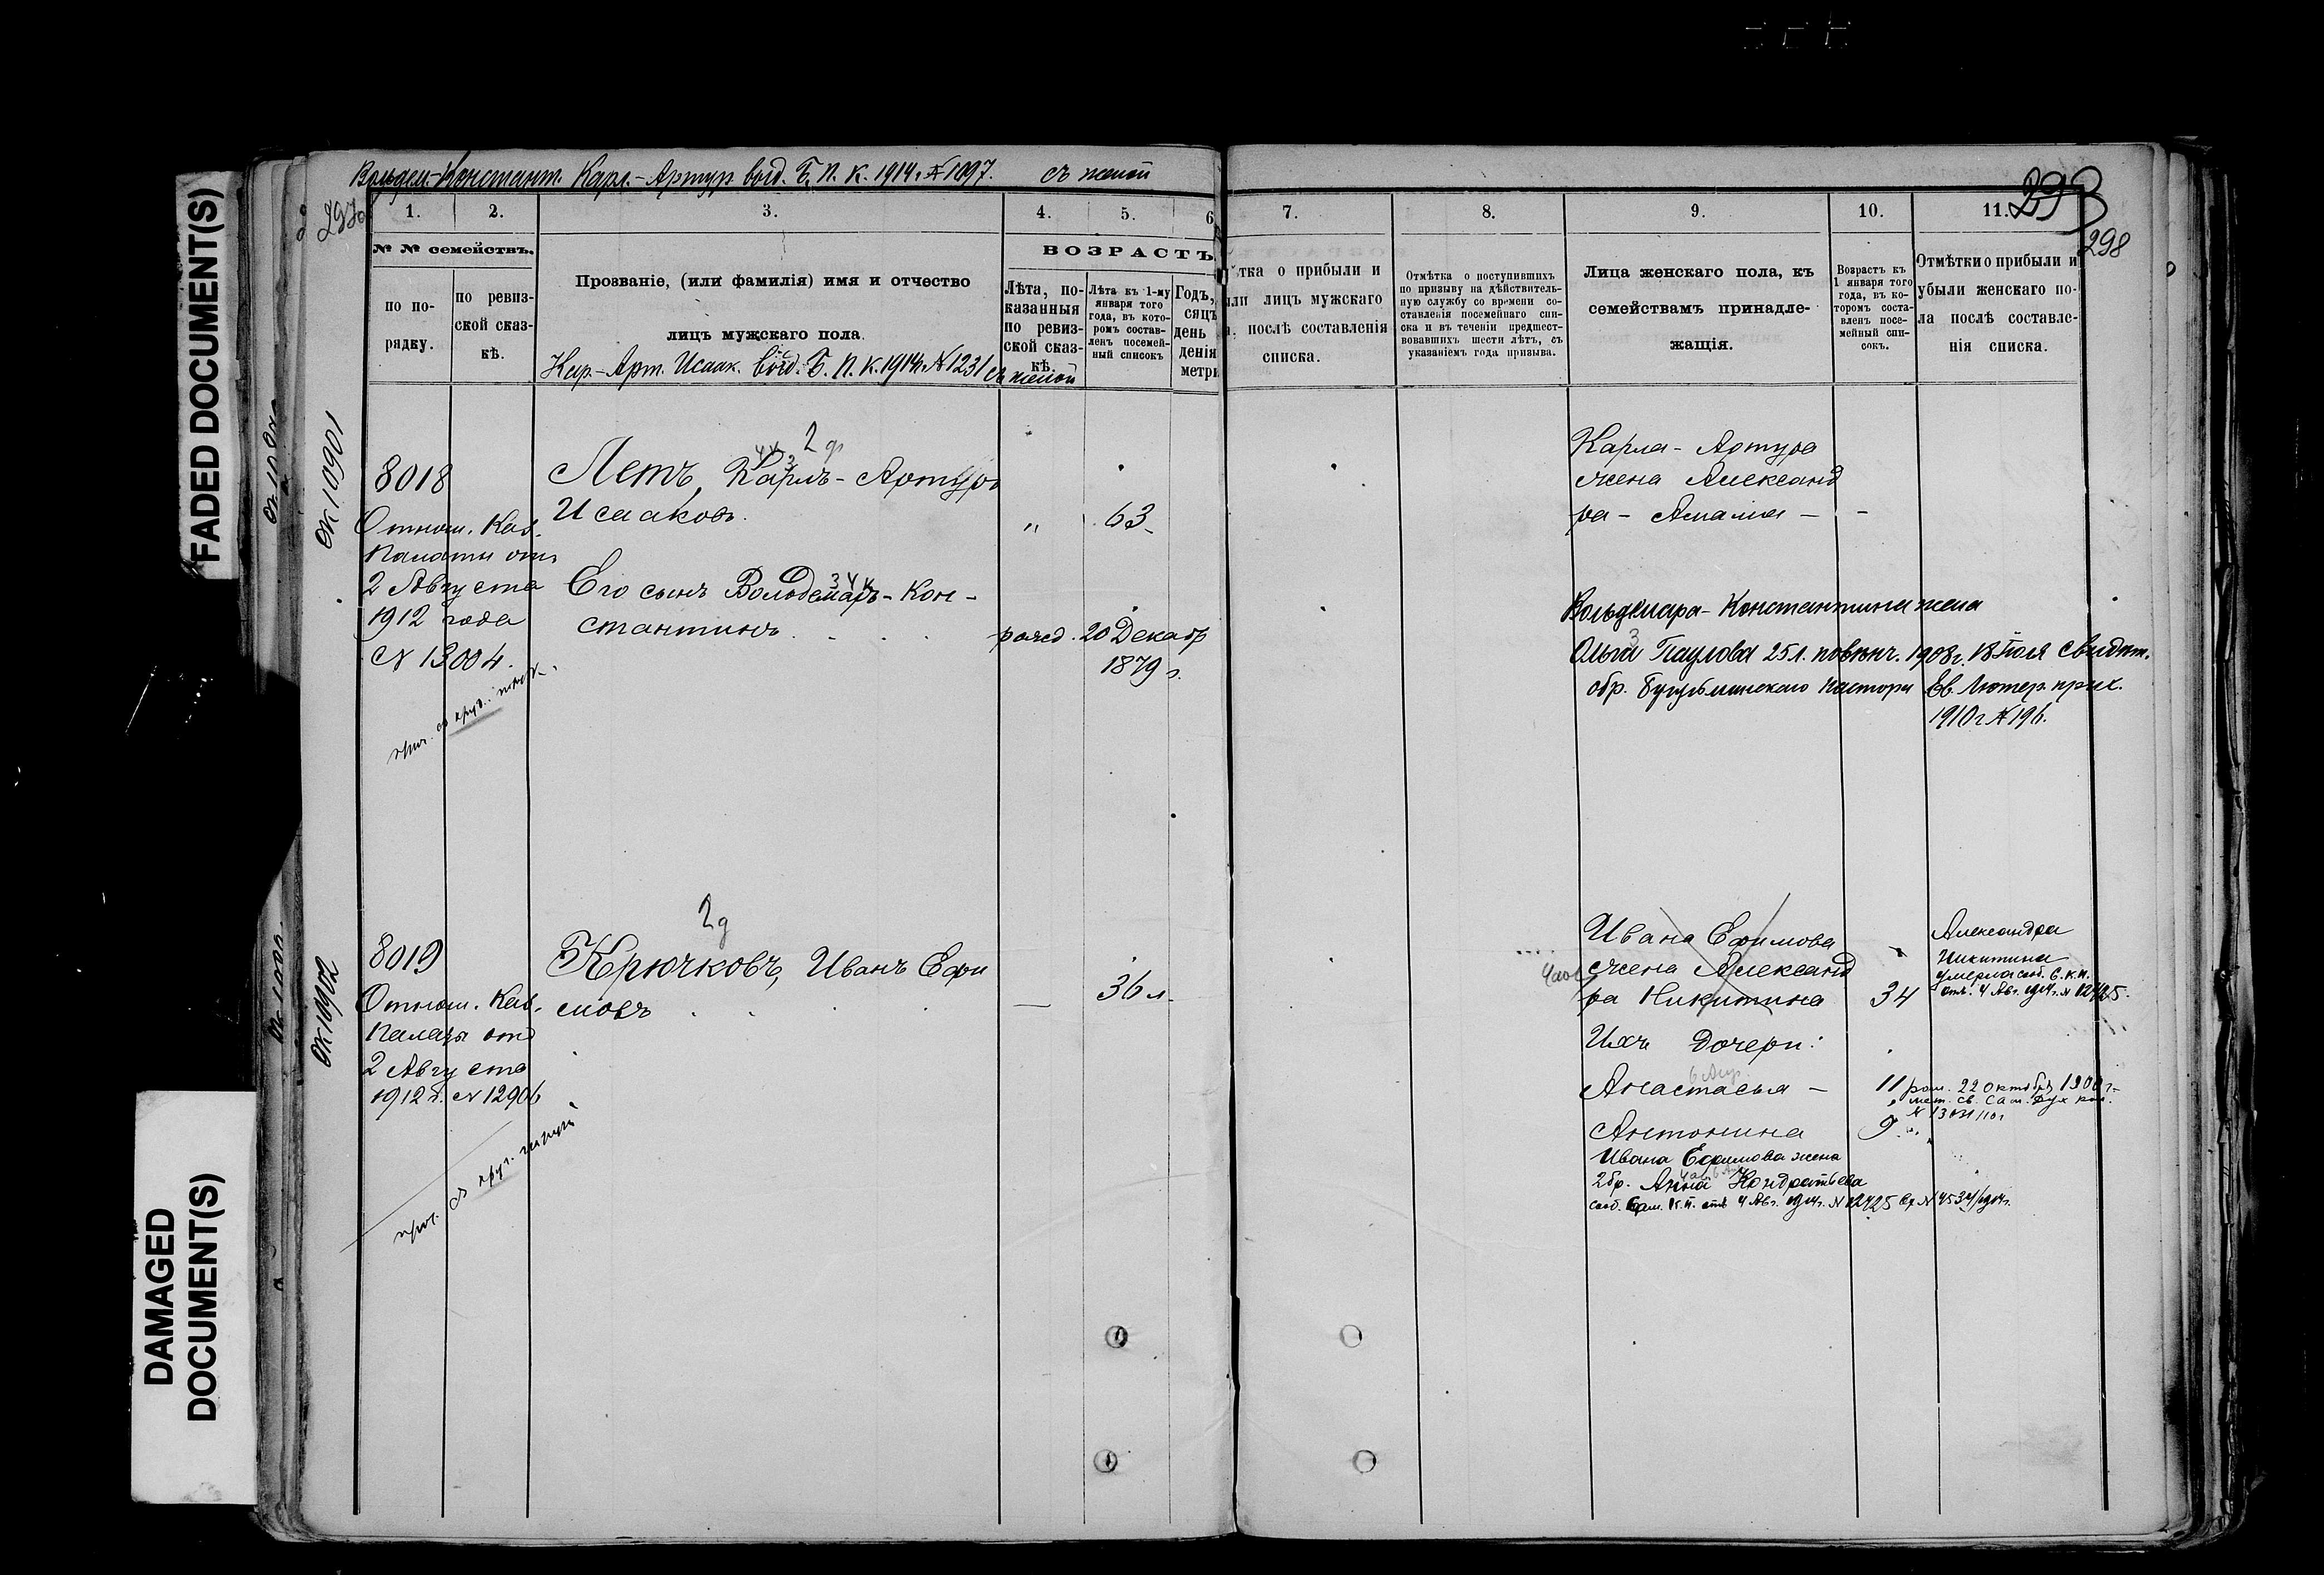 Вольдем.-Констант. Карл.-Артур. выд. Б. П. К. 1914 г. № 1097. съ женой
FADED DOCUMENT(S)
DAMAGED
DOCUMENT(S)
ок 10901
ок 10902
1.
2.
3.
4.
5.
6
№ № семействъ.
по по-
рядку.
по ревиз-
ской сказ-
кѣ.
Прозваніе, (или фамилія) имя и отчество
лицъ мужскаго пола.
Кар.-Арт. Исаак. выд. Б. П. К. 1914 г. № 1231 съ женой
ВОЗРАСТЪ
Лѣта, по-
казанныя
по ревиз-
ской сказ-
кѣ.
Лѣта къ 1-му
января того
года, въ кото-
ромъ состав-
ленъ посемей-
ный списокъ
Годъ,
сяцъ
день
денія
метри
8018
Отнош. Каз.
Палаты отъ
2 Августа
1912 года
№ 13004.
2 д
Летъ, Карлъ-Артуръ
Исааковъ.
"
63
Его сынъ Вольдемаръ-Кон-
стантинъ
рожд. 20 Декабр
1879 г.
8019
Отнош. Каз.
Палаты отъ
2 Августа
1912 г. № 12906
2 д
Крючковъ, Иванъ Ефи
мовъ
36 л.
293
298
7.
8.
9.
10.
11.
тка о прибыли и
ли лицъ мужскаго
а послѣ составленія
списка.
Отмѣтка о поступившихъ
по призыву на дѣйствитель-
ную службу со времени со-
ставленія посемейнаго спи-
ска и въ теченіи предшест-
вовавшихъ шести лѣтъ, съ
указаніемъ года призыва.
Лица женскаго пола, къ
семействамъ принадле-
жащія.
Возрастъ къ
1 января того
года, въ ко-
торомъ соста-
вленъ посе-
мейный спи-
сокъ.
Отмѣтки о прибыли и
убыли женскаго по-
ла послѣ составле-
нія списка.
Карла-Артура
жена Александ
ра-Амалия - -
Вольдемара-Константина жена
Ольга Паулова 25 л. повѣнч. 1908 г. 18 Іюля свидѣт.
обр. Бугульминскаго пастора Ев. Лютер. прих.
1910 г. № 196.
Ивана Ефимова
жена Александ
ра Никитина
34
Александра
Никитина
умерла сооб. С. К. П.
отъ 4 Авг. 1914 г. № 12425.
Ихъ дочери:
Анастасья -
11
рож. 22 октября 1900 г.
мет. св. Сам. Дух. кон.
Антонина
9
Ивана Ефимова жена
2 бр. Анна Кондратьева
сооб. Сам. К. П. отъ 4 Авг. 1914 г. № 12425 вх № 4534/1914 г.